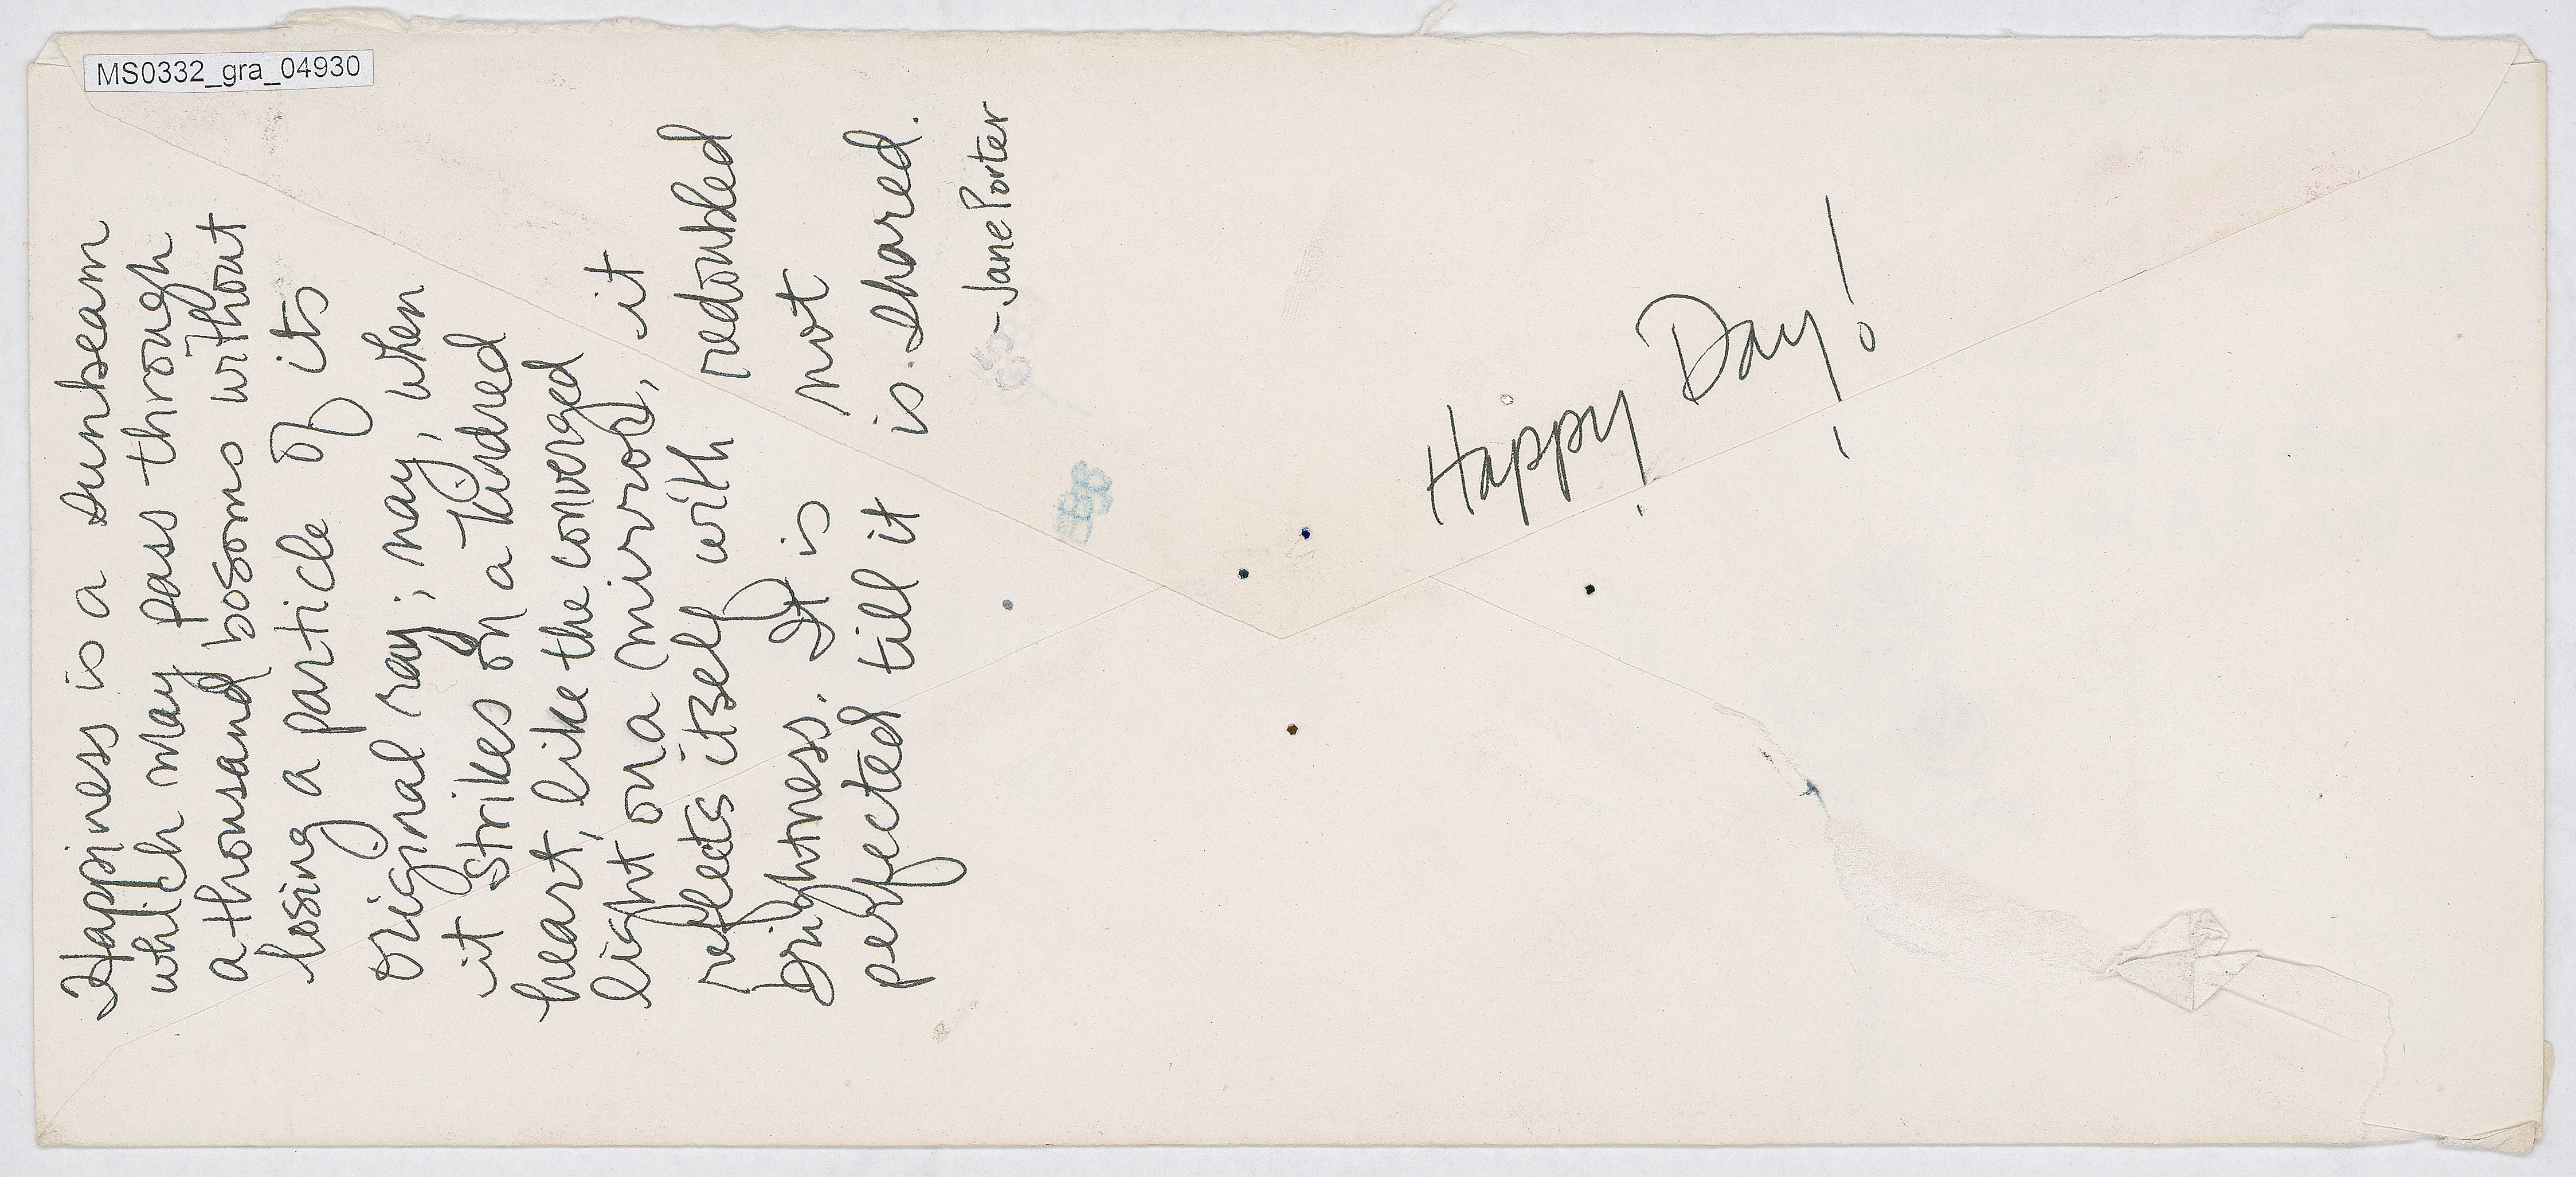 MS0332_gra_04930
Happiness is a sunbeam
which may pass through
a thousand bosoms without
losing a particle of its
original ray; nay, when
it strikes on a kindred
heart, like the converged
light on a mirror, it
reflects itself with redoubled
brightness. It is not
perfected till it is shared.
-Jane Porter
Happy Day!